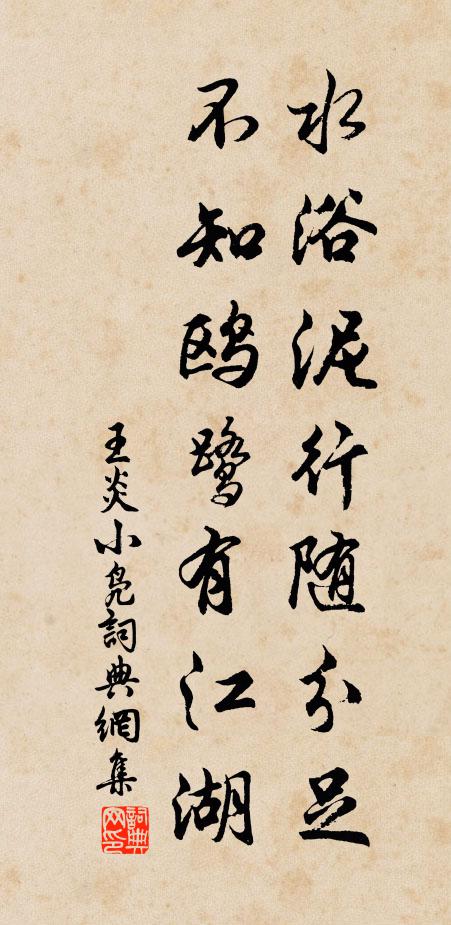 水浴泥行随分足
不知鸥鹭有江湖
王炎小凫詞典網集
詞典网印